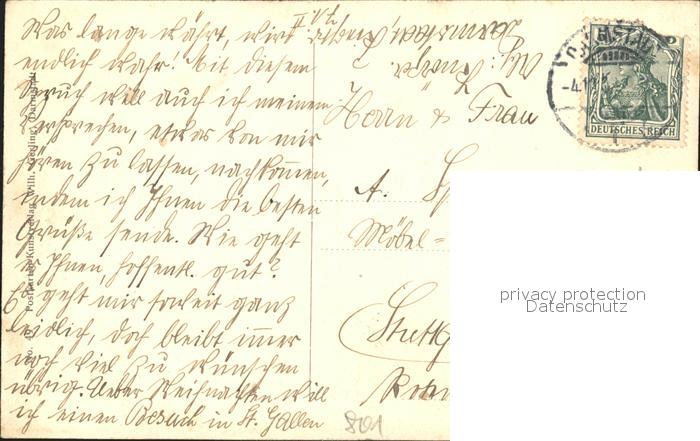 Was lange währt, wird
endlich wahr! Mit diesem
Spruch will auch ich meinem
Versprechen, etwas von mir
hören zu lassen, nachkommen,
indem ich Ihnen die besten
Grüße sende. Wie geht
es Ihnen hoffentl. gut?
Es geht mir soweit ganz
leidlich, doch bleibt immer
noch viel zu wünschen
übrig. Ueber Weihnachten will
ich einen Besuch in St. Gallen
Darmstadt,
Herrn & Frau
A.
Möbel-
Stuttg
801
DEUTSCHES REICH
privacy protection
Datenschutz